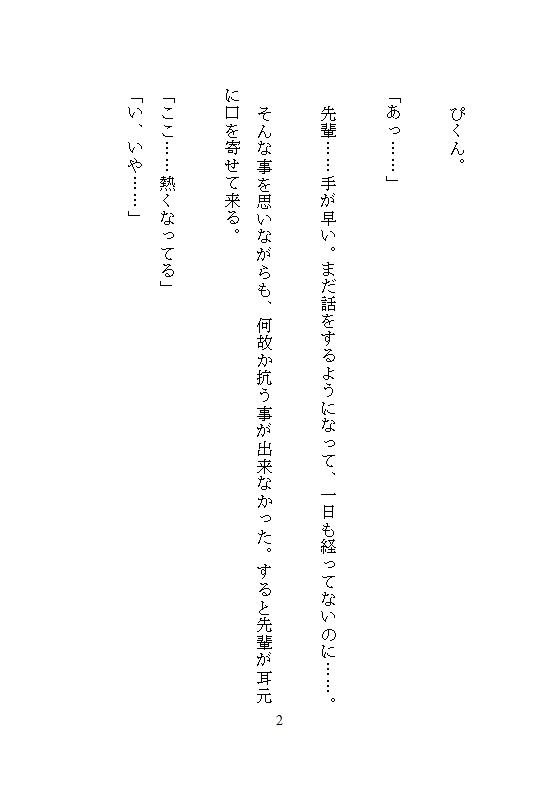 ぴくん。
「あっ……」
先輩……手が早い。まだ話をするようになって、一日も経ってないのに……。
そんな事を思いながらも、何故か抗う事が出来なかった。すると先輩が耳元
に口を寄せて来る。
「ここ……熱くなってる」
「い、いや……」
2